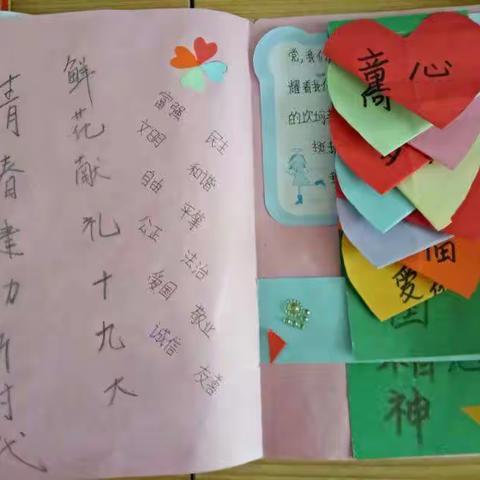 青春建功新时代
鲜花献礼十九大
富强
民主
文明
和谐
自由
平等
公正
法治
爱国
敬业
诚信
友善
党,我们
耀着我们
的坎坷
童心
爱
神